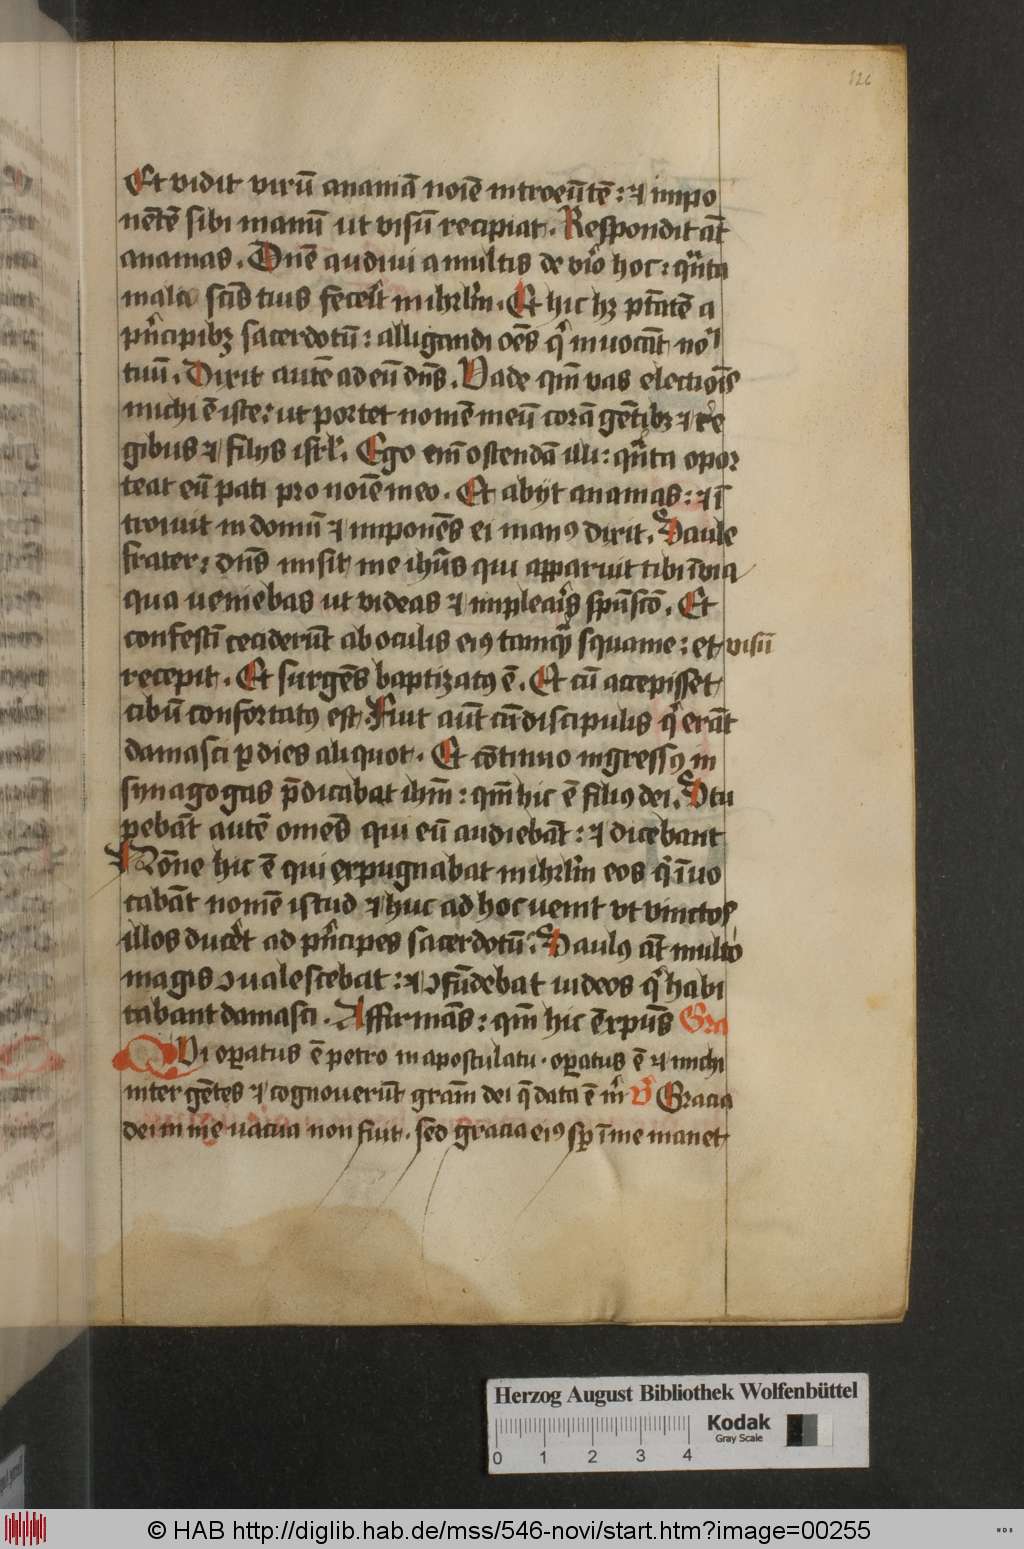 126
Et vidit virū ananiā noīe introeūtē: ⁊ impo
nētē sibi manū ut visū recipiat. Respondit aūt
ananias. Dn̄e audiui a multis de viro hoc: quāta
mala sc̄is tuis fecerit in ihrlm̄. Et hic hꝫ ptātē a
prīcipibꝫ sacerdotū: alligandi oēs qͥ inuocāt no
tuū. Dixit autē ad eū dn̄s. Vade qm̄ vas electiōis
michi ē iste: ut portet nomē meū corā gētibꝫ ⁊ re
gibus ⁊ filijs isrl̄. Ego em̄ ostendā illi: quāta opor
teat eū pati pro noīe meo. Et abijt ananias: ⁊ ī
troiuit in domū ⁊ imponēs ei manꝰ dixit. Saule
frater: dn̄s misit me ihūs qui apparuit tibi ī via
qua veniebas ut videas ⁊ implearis spū sctō. Et
confestī ceciderūt ab oculis eiꝰ tamqꝫ squame: et visū
recepit. Et surgēs baptizatꝰ ē. Et cū accepisset
cibū confortatꝰ est. Fuit aūt cū discipulis qͥ erāt
damasci ꝑ dies aliquot. Et cōtinuo ingressꝰ in
synagogas p̄dicabat ihm̄: qm̄ hic ē filiꝰ dei. Stu
pebāt autē omēs qui eū audiebāt: ⁊ dicebant
Nōne hic ē qui expugnabat in ihrlm̄ eos qͥ īuo
cabāt nomē istud ⁊ huc ad hoc uenit vt vinctos
illos ducēt ad prīcipes sacerdotū. Saulꝰ aūt multo
magis ↄualescebat: ⁊ ↄfūdebat iudeos qͥ habi
tabant damasci. Affirmās: qm̄ hic ē xpūs Gra
QVi oꝑatus ē petro in apostulatu. oꝑatus ē ⁊ michi
inter gētes ⁊ cognouerūt gram̄ dei q̄ data ē mͥ V Gracia
dei in me vacua non fuit. sed gracia eiꝰ sꝑ ī me manet
Herzog August Bibliothek Wolfenbüttel
Kodak
Gray Scale
0 1 2 3 4
© HAB http://diglib.hab.de/mss/546-novi/start.htm?image=00255